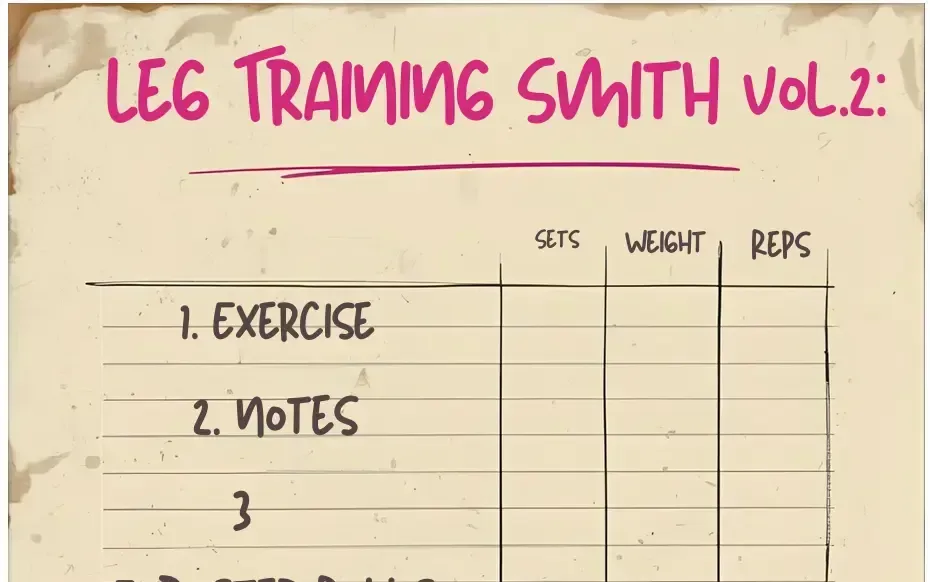 LEG TRAINING SMITH VOL.2:
SETS WEIGHT REPS
1. EXERCISE
2. NOTES
3